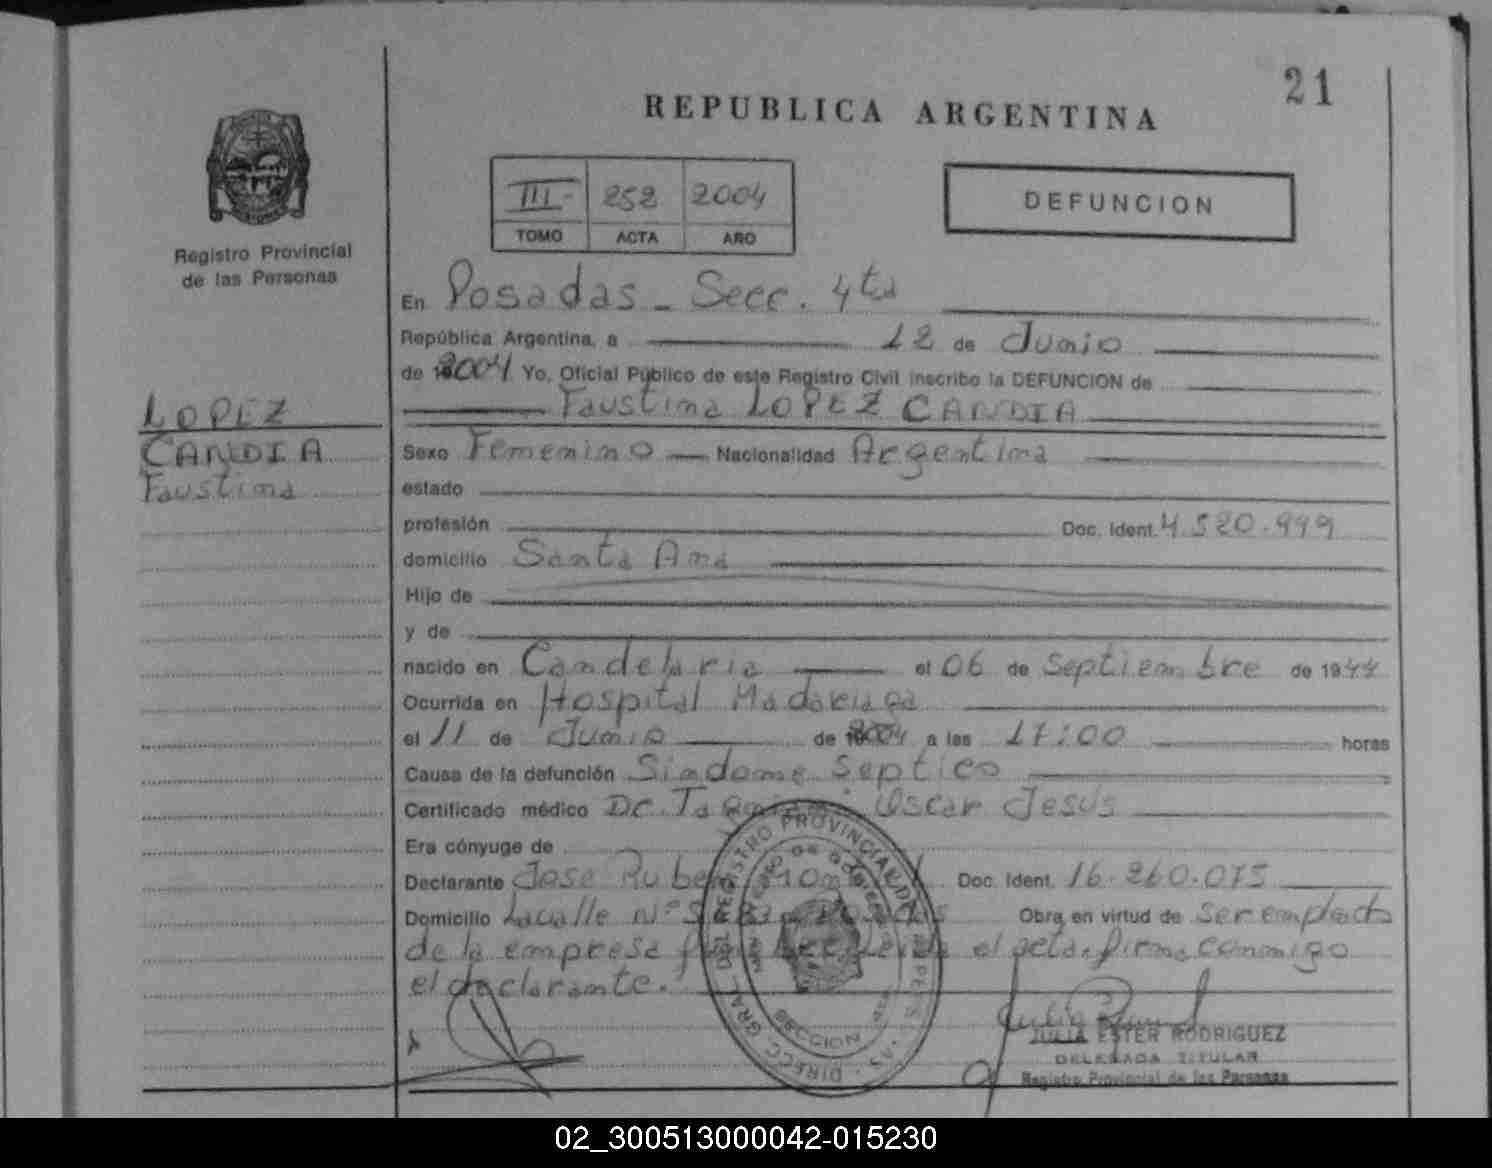 21
REPUBLICA ARGENTINA
III- 252 2004
TOMO ACTA AÑO
DEFUNCION
Registro Provincial
de las Personas
En Posadas - Secc. 4ta
República Argentina, a 12 de Junio
de 2004 Yo, Oficial Público de este Registro Civil inscribo la DEFUNCION de
Faustina LOPEZ CANDIA
LOPEZ
CANDIA
Faustina
Sexo Femenino Nacionalidad Argentina
estado
profesión Doc. Ident. 4.520.999
domicilio Santa Ana
Hijo de
y de
nacido en Candelaria el 06 de Septiembre de 1944
Ocurrida en Hospital Madariaga
el 11 de Junio de 2004 a las 17:00 horas
Causa de la defunción Sindome Septico
Certificado médico Dr. Oscar Jesús
Era cónyuge de
Declarante Jose Ruben Doc. Ident. 16.260.075
Domicilio Lavalle Nº Obra en virtud de ser empleado
de la empresa el acta, firma conmigo
el declarante.
JULIA ESTER RODRIGUEZ
DELEGADA TITULAR
Registro Provincial de las Personas
DIRECC. GRAL. DEL REGISTRO PROVINCIAL DE LAS PERS.
SECCION
02_300513000042-015230